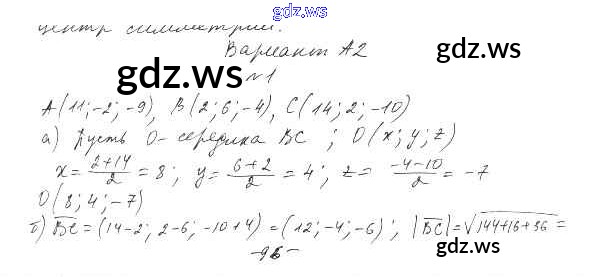 gdz.ws
центр симметрии.
Вариант А2
gdz.ws
gdz.ws
№1
A(11; -2; -9), B(2; 6; -4), C(14; 2; -10)
а) Пусть O - середина BC ; O(x; y; z)
x = \frac{2+14}{2} = 8 ; y = \frac{6+2}{2} = 4 ; z = \frac{-4-10}{2} = -7
O(8; 4; -7)
б) \overline{BC} = (14-2; 2-6; -10+4) = (12; -4; -6) ; |\overline{BC}| = \sqrt{144+16+36} =
- 96 -
gdz.ws
gdz.ws